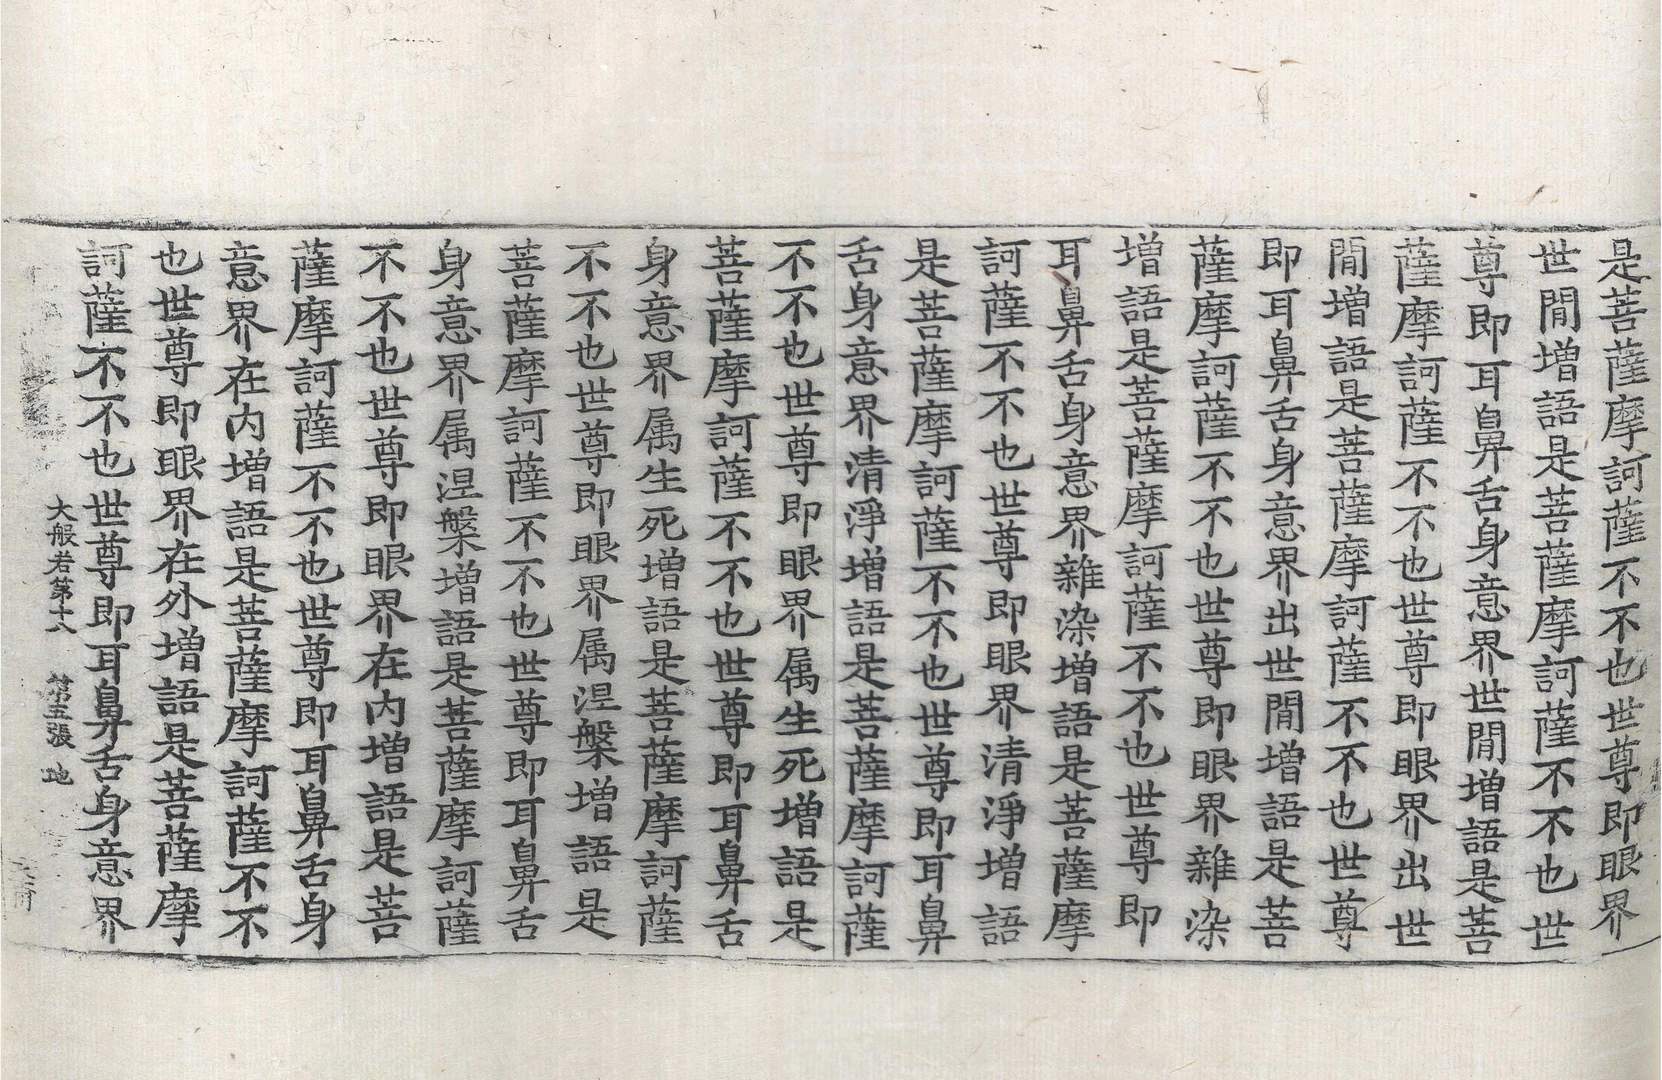 是菩薩摩訶薩不不也世尊即眼界
世閒増語是菩薩摩訶薩不不也世
尊即耳鼻舌身意界世閒増語是菩
薩摩訶薩不不也世尊即眼界出世
閒増語是菩薩摩訶薩不不也世尊
即耳鼻舌身意界出世閒増語是菩
薩摩訶薩不不也世尊即眼界雜染
増語是菩薩摩訶薩不不也世尊即
耳鼻舌身意界雜染増語是菩薩摩
訶薩不不也世尊即眼界清淨増語
是菩薩摩訶薩不不也世尊即耳鼻
舌身意界清淨増語是菩薩摩訶薩
不不也世尊即眼界属生死増語是
菩薩摩訶薩不不也世尊即耳鼻舌
身意界属生死増語是菩薩摩訶薩
不不也世尊即眼界属涅槃増語是
菩薩摩訶薩不不也世尊即耳鼻舌
身意界属涅槃増語是菩薩摩訶薩
不不也世尊即眼界在内増語是菩
薩摩訶薩不不也世尊即耳鼻舌身
意界在内増語是菩薩摩訶薩不不
也世尊即眼界在外増語是菩薩摩
訶薩不不也世尊即耳鼻舌身意界
大般若第十八 第五張 地